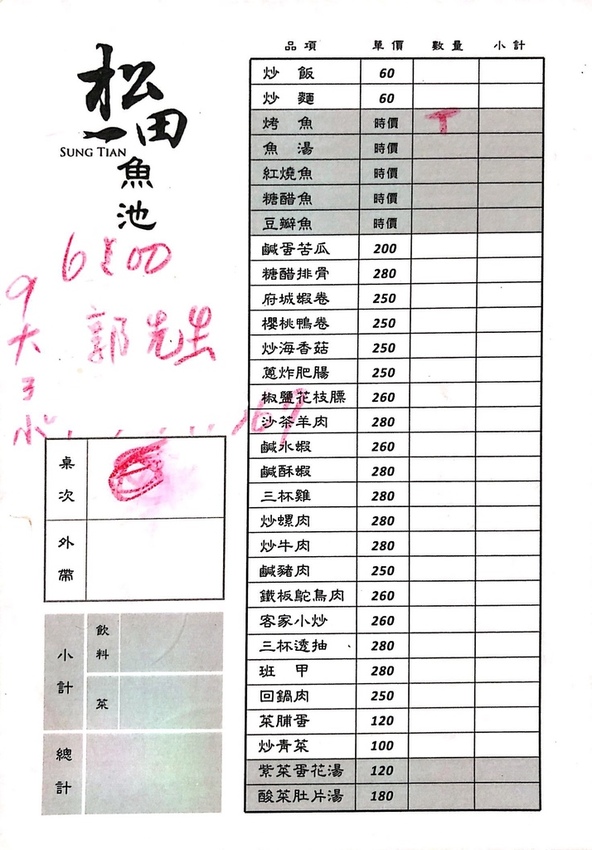 松田
SUNG TIAN
魚池
6:00
郭先生
9大
3小
桌次
外帶
小計
飲料
菜
總計
品項 單價 數量 小計
炒飯 60
炒麵 60
烤魚 時價 T
魚湯 時價
紅燒魚 時價
糖醋魚 時價
豆瓣魚 時價
鹹蛋苦瓜 200
糖醋排骨 280
府城蝦卷 250
櫻桃鴨卷 250
炒海香菇 250
蔥炸肥腸 250
椒鹽花枝膘 260
沙茶羊肉 280
鹹水蝦 260
鹹酥蝦 280
三杯雞 280
炒螺肉 280
炒牛肉 280
鹹豬肉 250
鐵板鴕鳥肉 260
客家小炒 260
三杯透抽 280
班甲 280
回鍋肉 250
菜脯蛋 120
炒青菜 100
紫菜蛋花湯 120
酸菜肚片湯 180